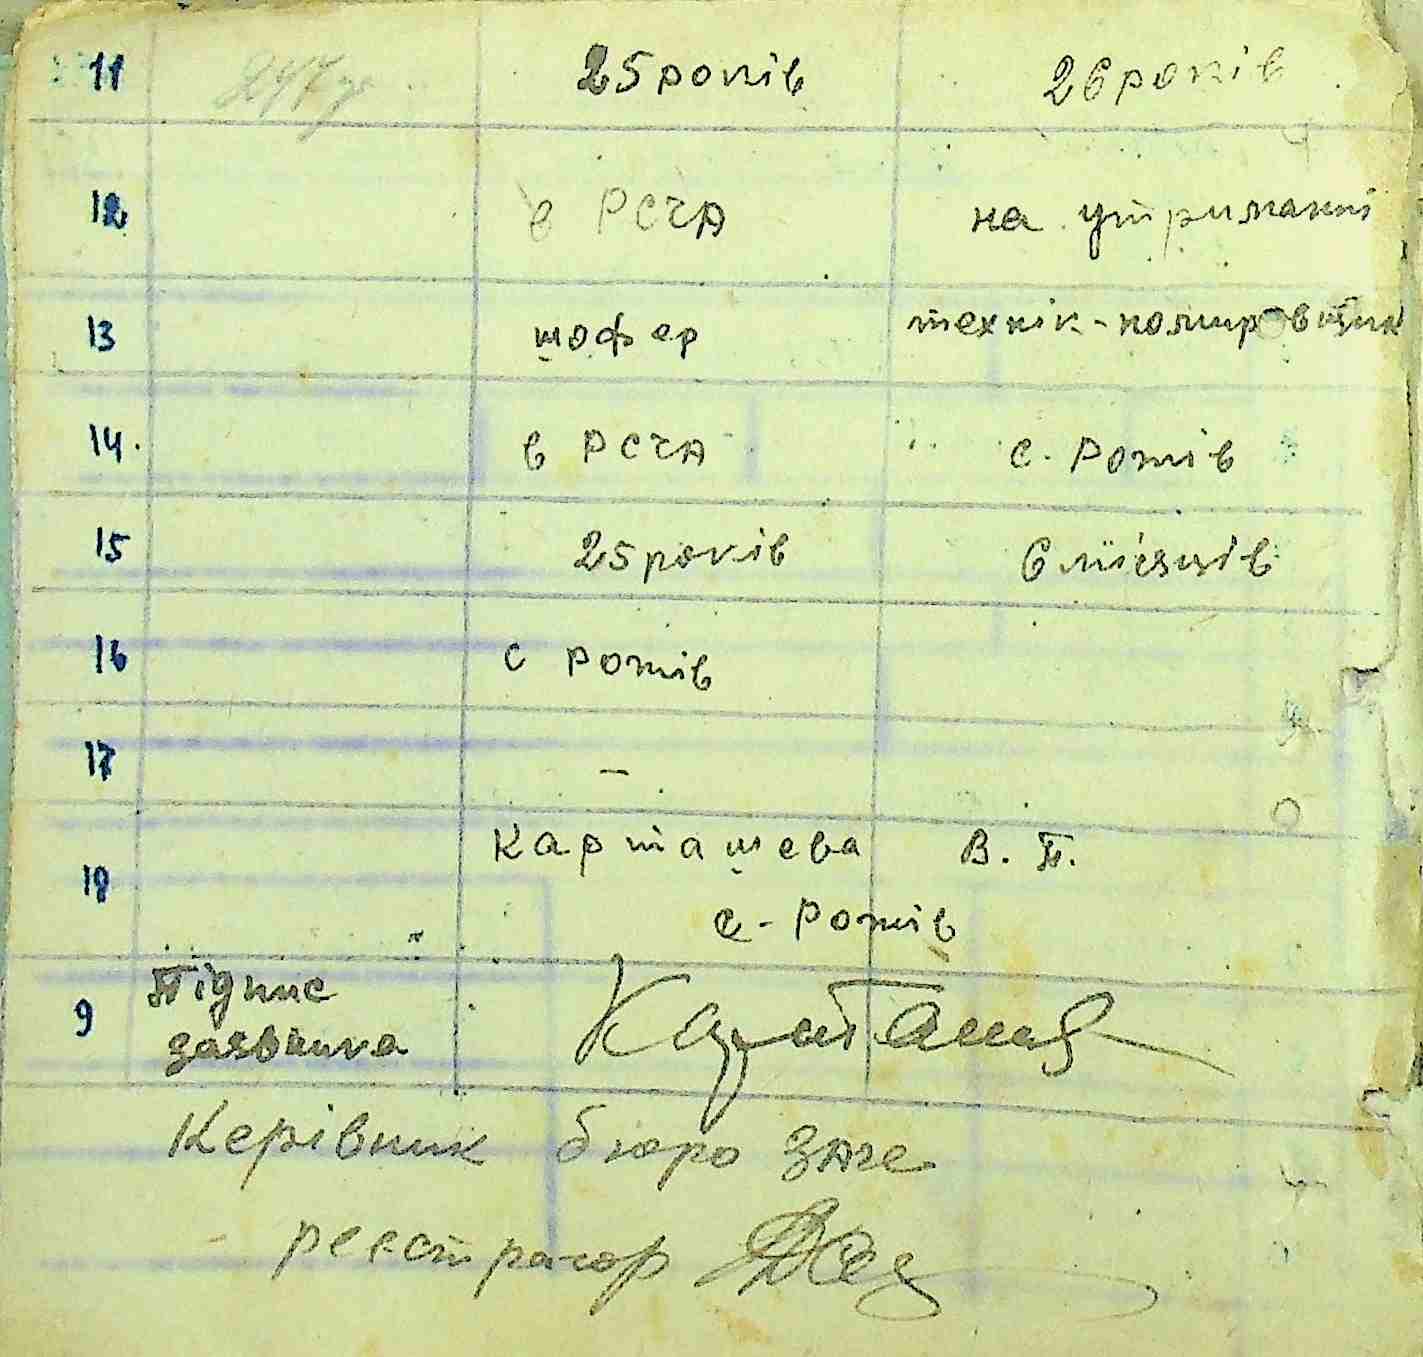 11 25 років 26 років
12 в РСЧА на утриманні
13 шофер технік-
14. в РСЧА с. Ротів
15 25 років 6 місяців
16 с Ротів
17 –
18 Карташева В. П.
с- Ротів
9 Підпис
заявника
Керівник бюро ЗАГС
реєстратор